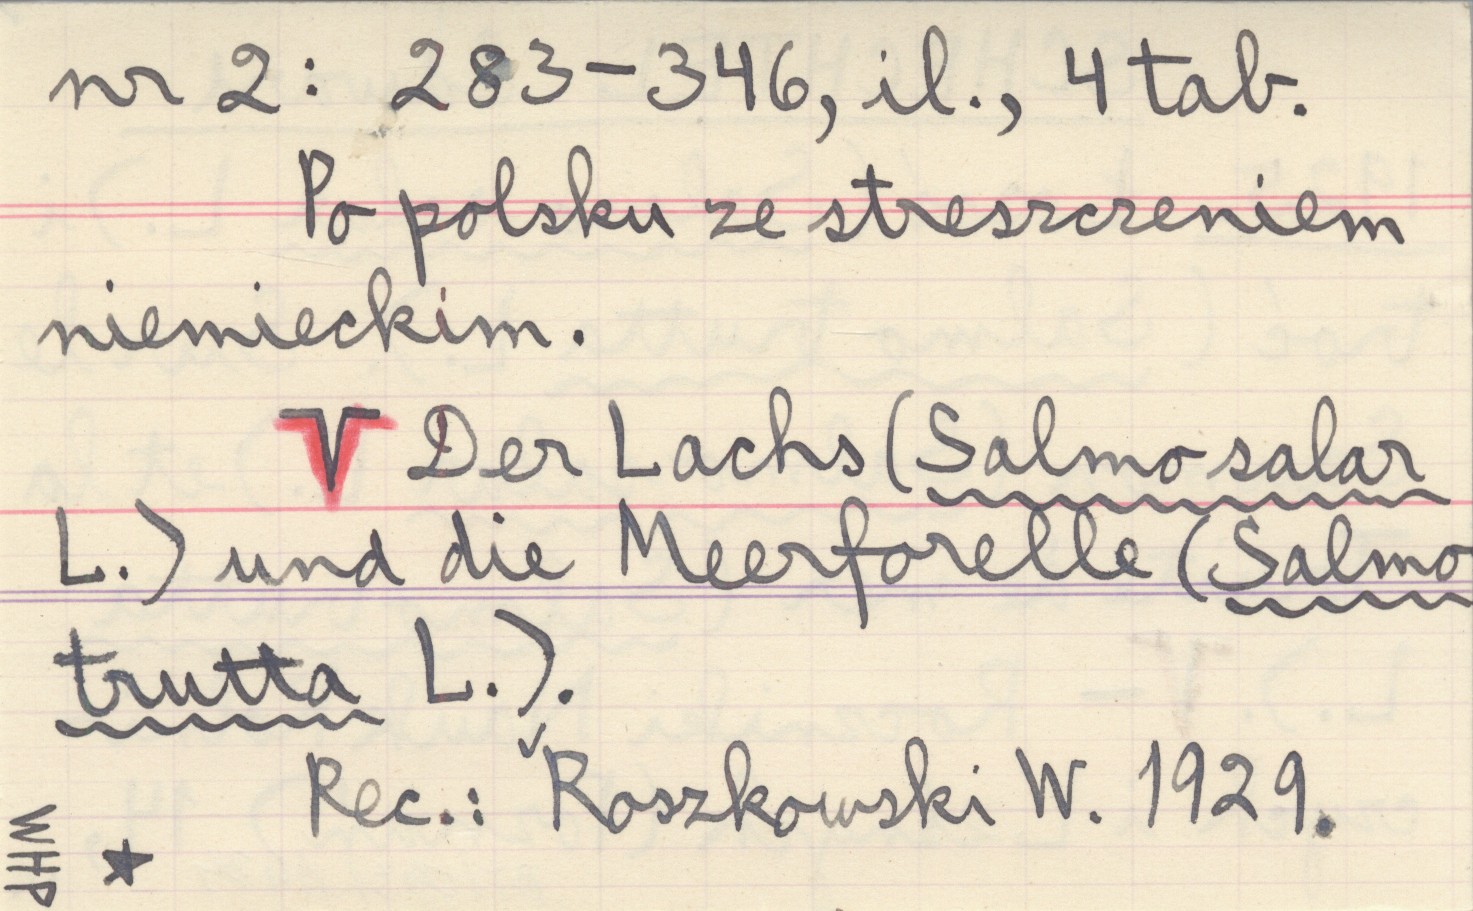 nr 2: 283-346, il., 4 tab.
Po polsku ze streszczeniem
niemieckim.
V Der Lachs (Salmo salar
L.) und die Meerforelle (Salmo
trutta L.).
Rec.: Roszkowski W. 1929.
WHP